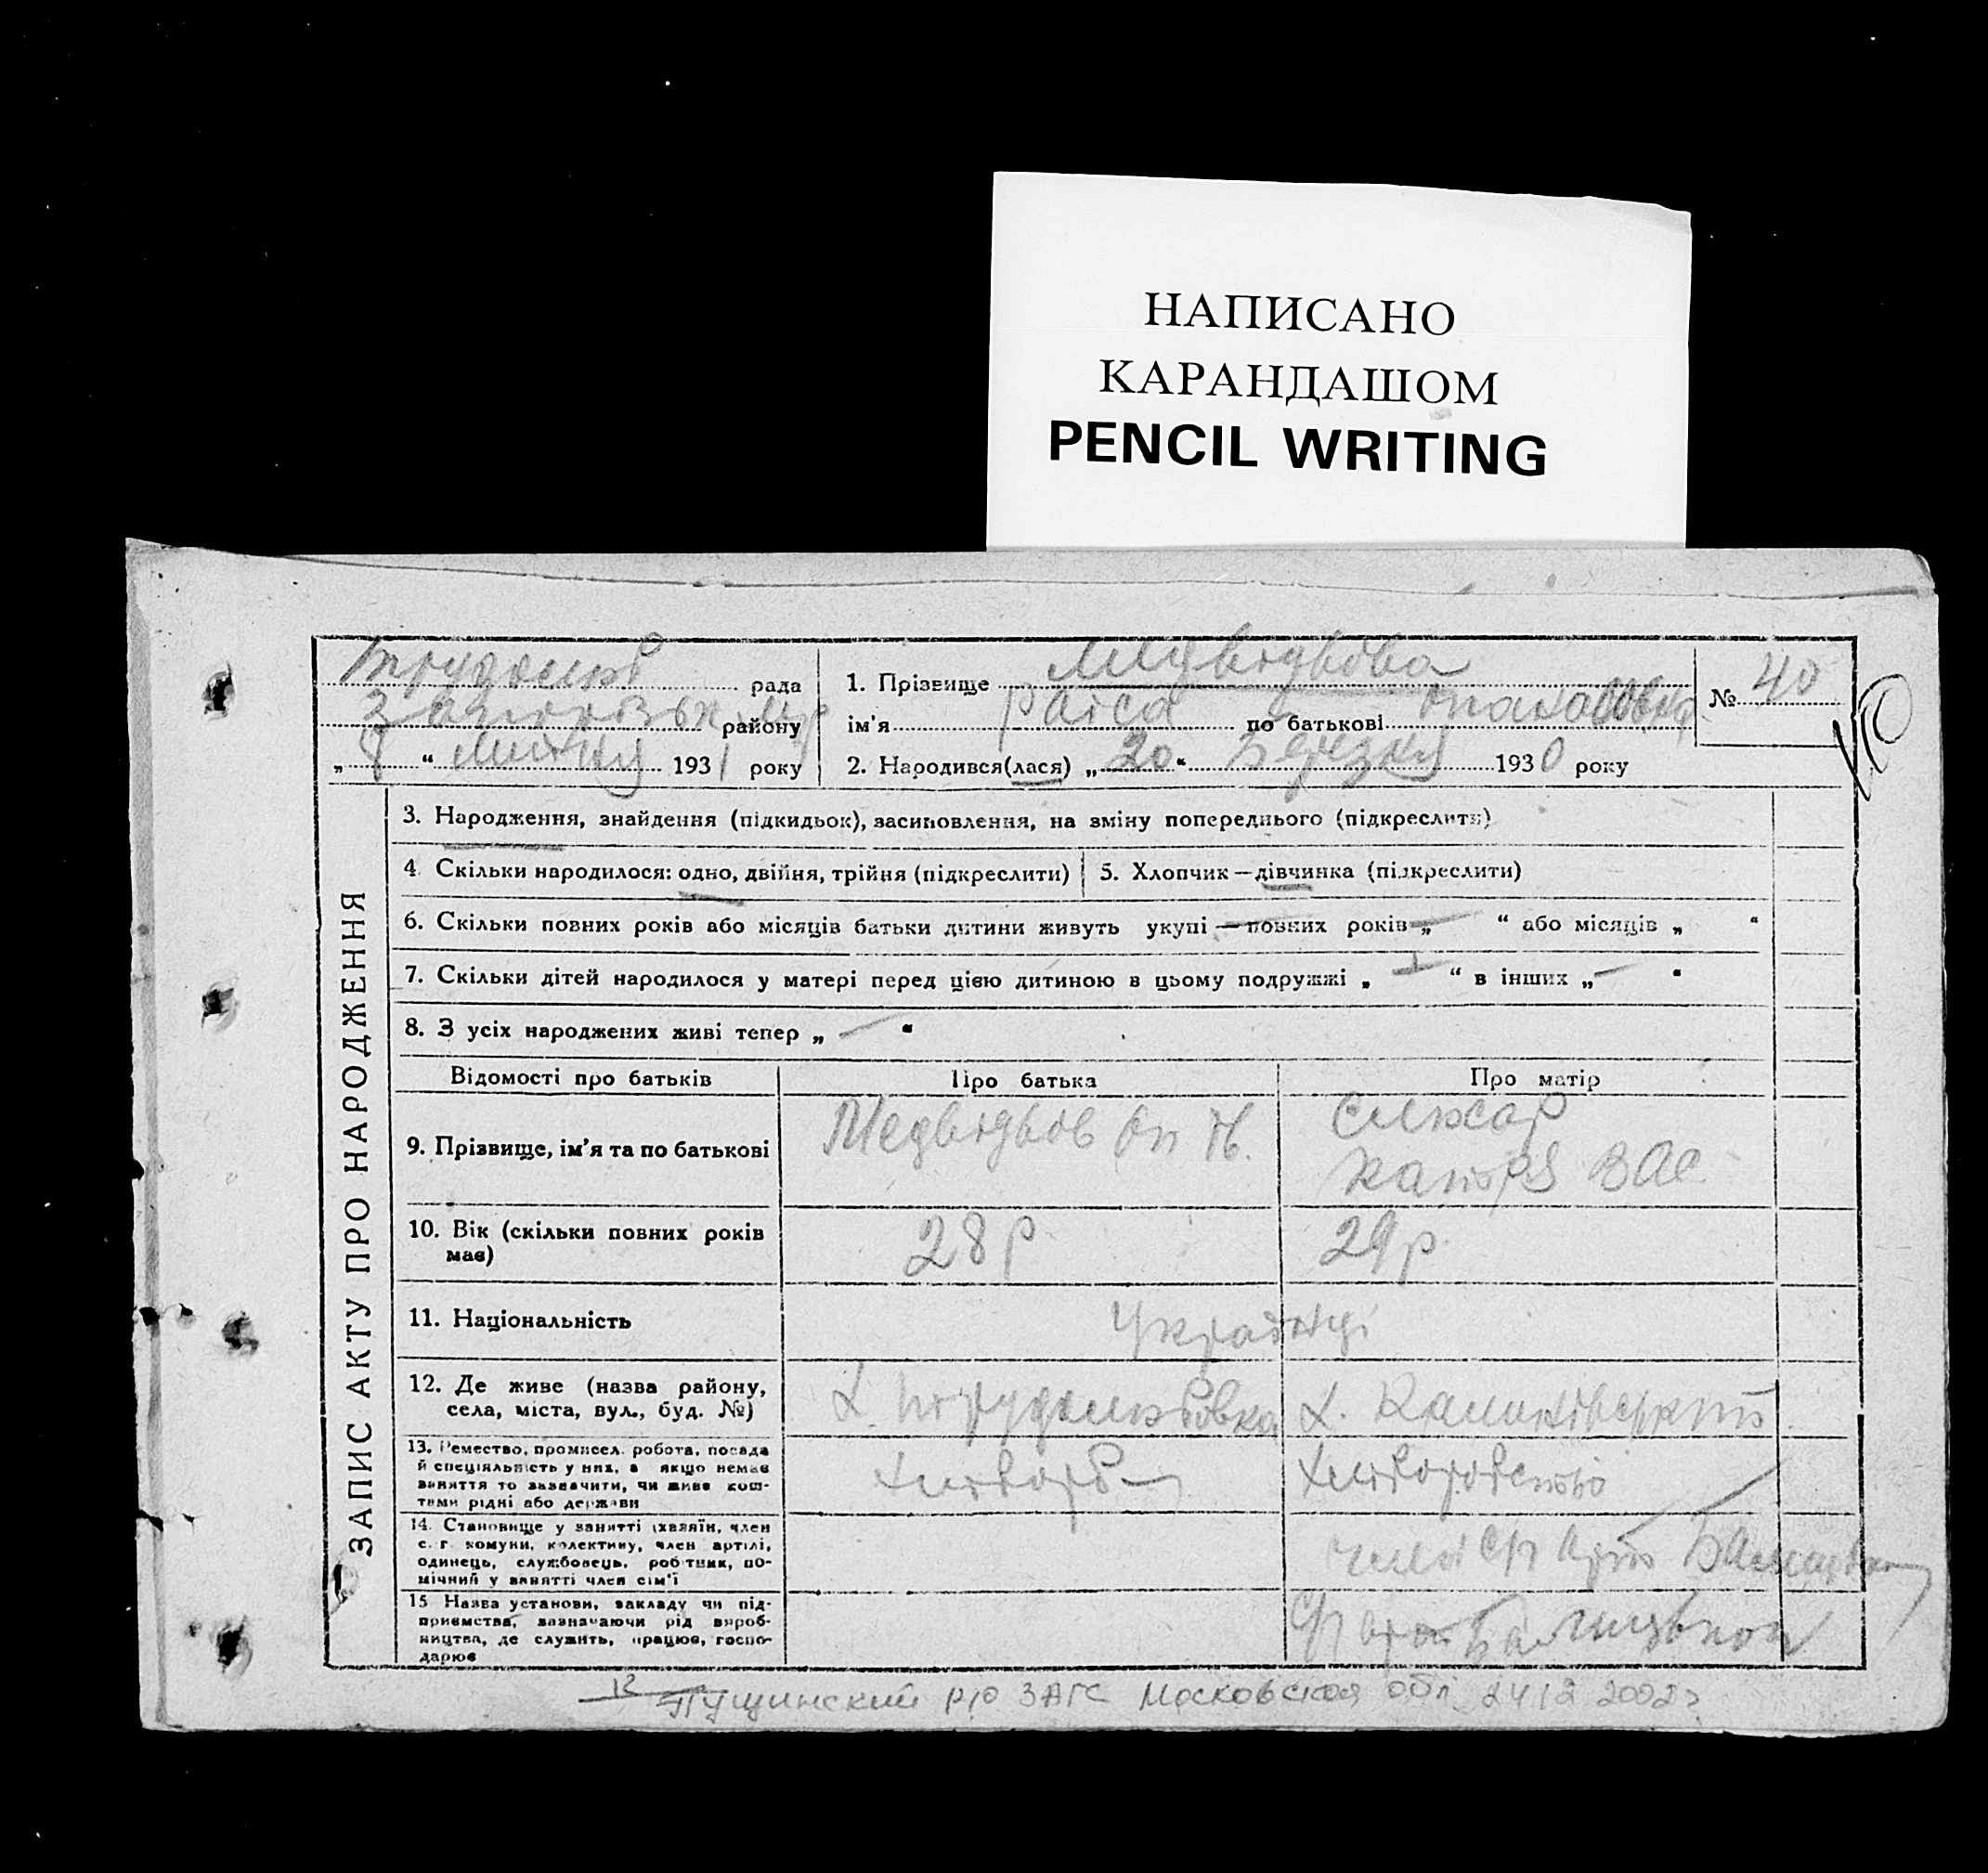 НАПИСАНО
КАРАНДАШОМ
PENCIL WRITING
рада
району
„ 8 “ 1931 року
1. Прізвище Медвідьова
ім'я Раіса по батькові
2. Народився(лася) „ 20 “ Березня 1930 року
№ 40
40
ЗАПИС АКТУ ПРО НАРОДЖЕННЯ
3. Народження, знайдення (підкидьок), засиновлення, на зміну попереднього (підкреслити)
4. Скільки народилося: одно, двійня, трійня (підкреслити)
5. Хлопчик — дівчинка (підкреслити)
6. Скільки повних років або місяців батьки дитини живуть укупі — повних років „ “ або місяців „ “
7. Скільки дітей народилося у матері перед цією дитиною в цьому подружжі „ “ в інших „ — “
8. З усіх народжених живі тепер „ — “
Відомості про батьків
Про батька
Про матір
9. Прізвище, ім'я та по батькові
Медвідьов Оп Н.
Вас.
10. Вік (скільки повних років
має)
28 р
29 р
11. Національність
Українці
12. Де живе (назва району,
села, міста, вул., буд. №)
х.
х.
13. Ремество, промисел, робота, посада
й спеціяльність у них, а якщо немає
заняття то зазначити, чи живе кош-
тами рідні або держави
хлібороб
хліборобство
14. Становище у занятті (хазяїн, член
с. г. комуни, колективу, член артілі,
одинець, службовець, робітник, по-
мічний у занятті член сім'ї
член с/г
15 Назва установи, закладу чи під-
приємства, зазначаючи рід вироб-
ництва, де служить, працює, госпо-
дарює
Пущинский р/о ЗАГС Московская обл. 24 12 2002 г